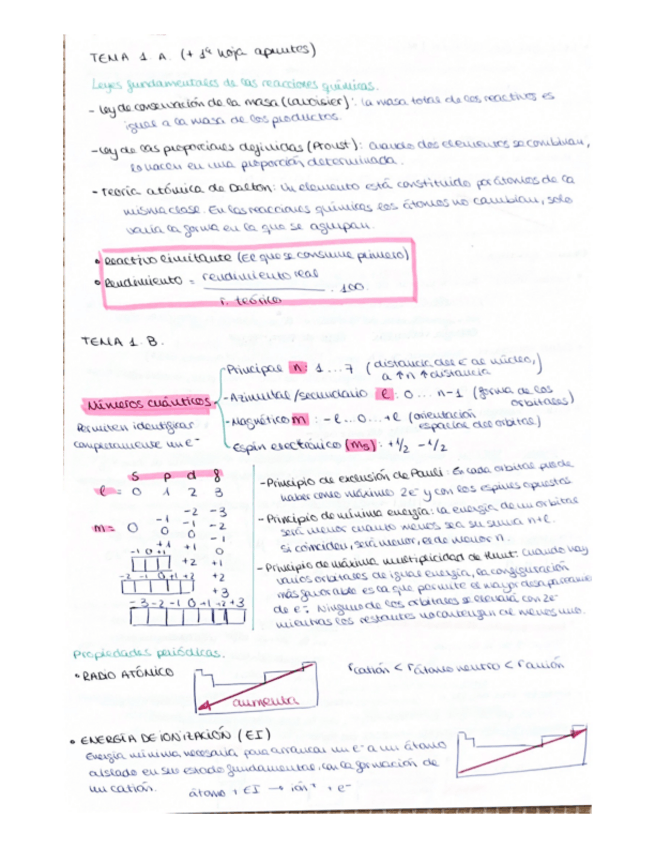 TEMA 1 A. (+ 1ª hoja apuntes)
Leyes fundamentales de las reacciones químicas.
- Ley de conservación de la masa (Lavoisier): la masa total de los reactivos es
igual a la masa de los productos.
- Ley de las proporciones definidas (Proust): cuando dos elementos se combinan,
lo hacen en una proporción determinada.
- Teoría atómica de Dalton: Un elemento está constituido por átomos de la
misma clase. En las reacciones químicas los átomos no cambian, solo
varía la forma en la que se agrupan.
• Reactivo limitante (El que se consume primero)
• Rendimiento = rendimiento real / r. teórico · 100
TEMA 1. B.
Números cuánticos
Permiten identificar
completamente un e-
- Principal n: 1 ... 7 (distancia del e- al núcleo,
a ↑n ↑distancia)
- Azimutal/secundario l: 0 ... n-1 (forma de los
orbitales)
- Magnético m: -l...0...+l (orientación
espacial del orbital)
Espín electrónico (ms): +1/2 -1/2
s p d f
l = 0 1 2 3
-2 -3
m = 0 -1 -1 -2
0 0 -1
+1 +1 0
-1 0 +1
+2 +1
-2 -1 0 +1 +2 +2
+3
-3 -2 -1 0 +1 +2 +3
- Principio de exclusión de Pauli: En cada orbital puede
haber como máximo 2e- y con los espines opuestos
- Principio de mínima energía: la energía de un orbital
será menor cuanto menos sea su suma n+l.
Si coinciden, será menor, el de menor n.
- Principio de máxima multiplicidad de Hund: Cuando hay
varios orbitales de igual energía, la configuración
más favorable es la que permite el mayor desapareamiento
de e-. Ninguno de los orbitales se llenará con 2e-
mientras los restantes no contengan al menos uno.
Propiedades periódicas.
• RADIO ATÓMICO
aumenta
r catión < r átomo neutro < r anión
• ENERGÍA DE IONIZACIÓN (EI)
Energía mínima necesaria para arrancar un e- a un átomo
aislado en su estado fundamental, con la formación de
un catión. átomo + EI → ión+ + e-